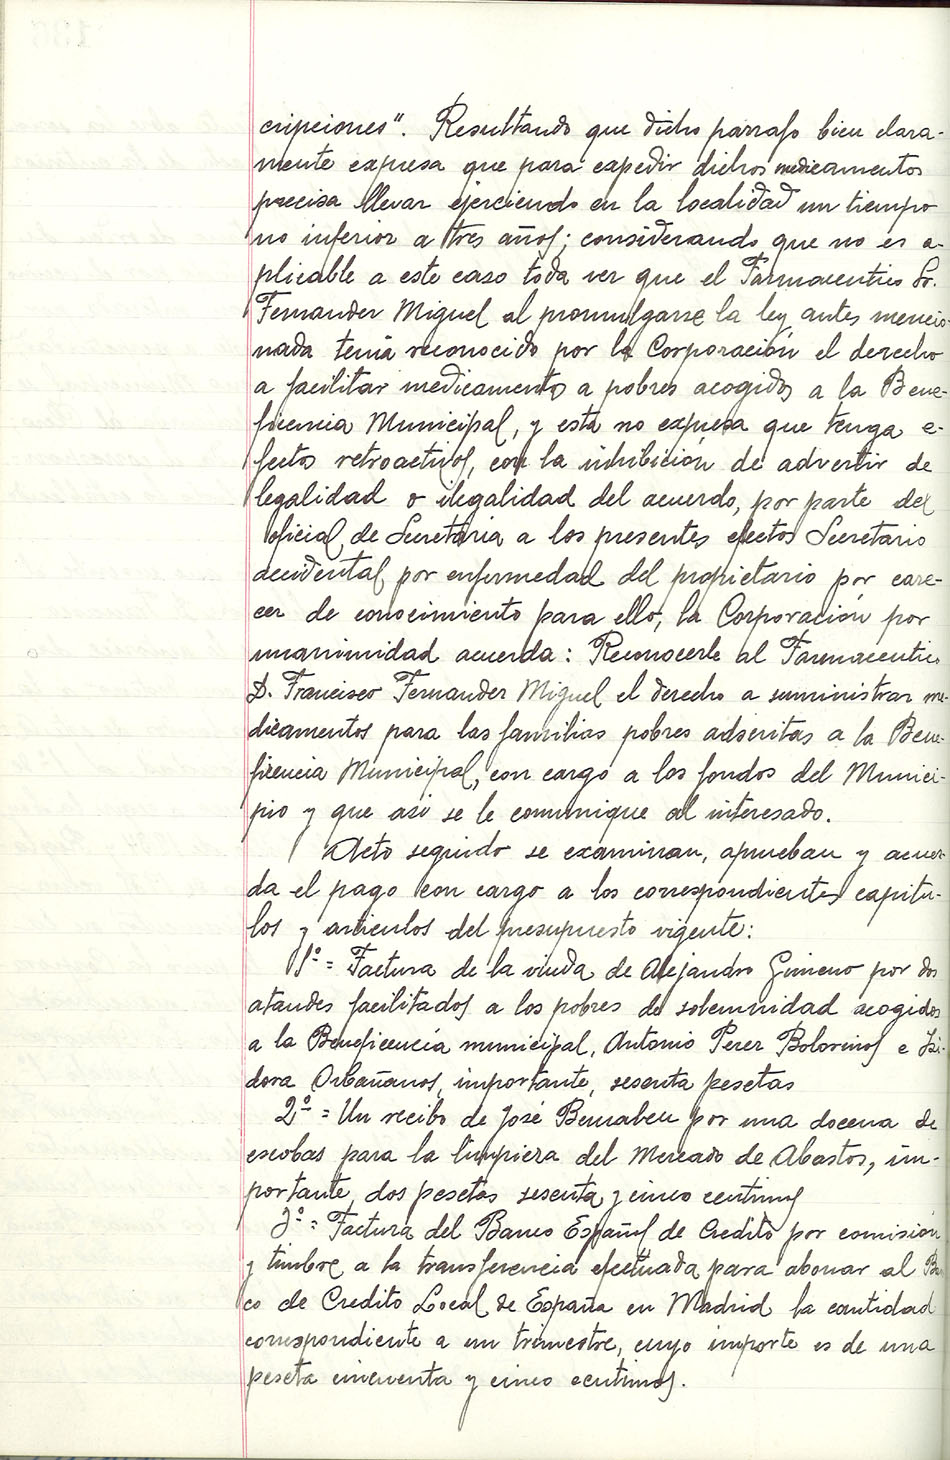 cripciones". Resultando que dicho parrafo bien clara-
mente expresa que para expedir dichos medicamentos
precisa llevar ejerciendo en la localidad un tiempo
no inferior a tres años; considerando que no es a-
plicable a este caso toda vez que el Farmaceutico Sr.
Fernandez Miguel al promulgarse la ley antes mencio-
nada tenia reconocido por la Corporación el derecho
a facilitar medicamentos a pobres acogidos a la Bene-
ficencia Municipal, y esta no expresa que tenga e-
fectos retroactivos, con la inhibición de advertir de
legalidad o ilegalidad del acuerdo, por parte del
oficial de Secretaria a los presentes efectos Secretario
accidental por enfermedad del propietario por care-
cer de conocimiento para ello, la Corporación por
unanimidad acuerda: Reconocerle al Farmaceutico
D. Francisco Fernandez Miguel el derecho a suministrar me-
dicamentos para las familias pobres adscritas a la Bene-
ficencia Municipal, con cargo a los fondos del Munici-
pio y que asi se le comunique al interesado.
Acto seguido se examinan, aprueban y acuer-
da el pago con cargo a los correspondientes capitu-
los y articulos del presupuesto vigente:
1º = Factura de la viuda de Alejandro Gimeno por dos
ataudes facilitados a los pobres de solemnidad acogidos
a la Beneficencia municipal, Antonio Perez Bolorinos e Isi-
dora Orbañanos, importante, sesenta pesetas
2º = Un recibo de José Bernabeu por una docena de
escobas para la limpieza del Mercado de Abastos, im-
portante, dos pesetas sesenta y cinco centimos
3º = Factura del Banco Español de Credito por comisión
y timbre a la transferencia efectuada para abonar al Ban
co de Credito Local de España en Madrid la cantidad
correspondiente a un trimestre, cuyo importe es de una
peseta cincuenta y cinco centimos.